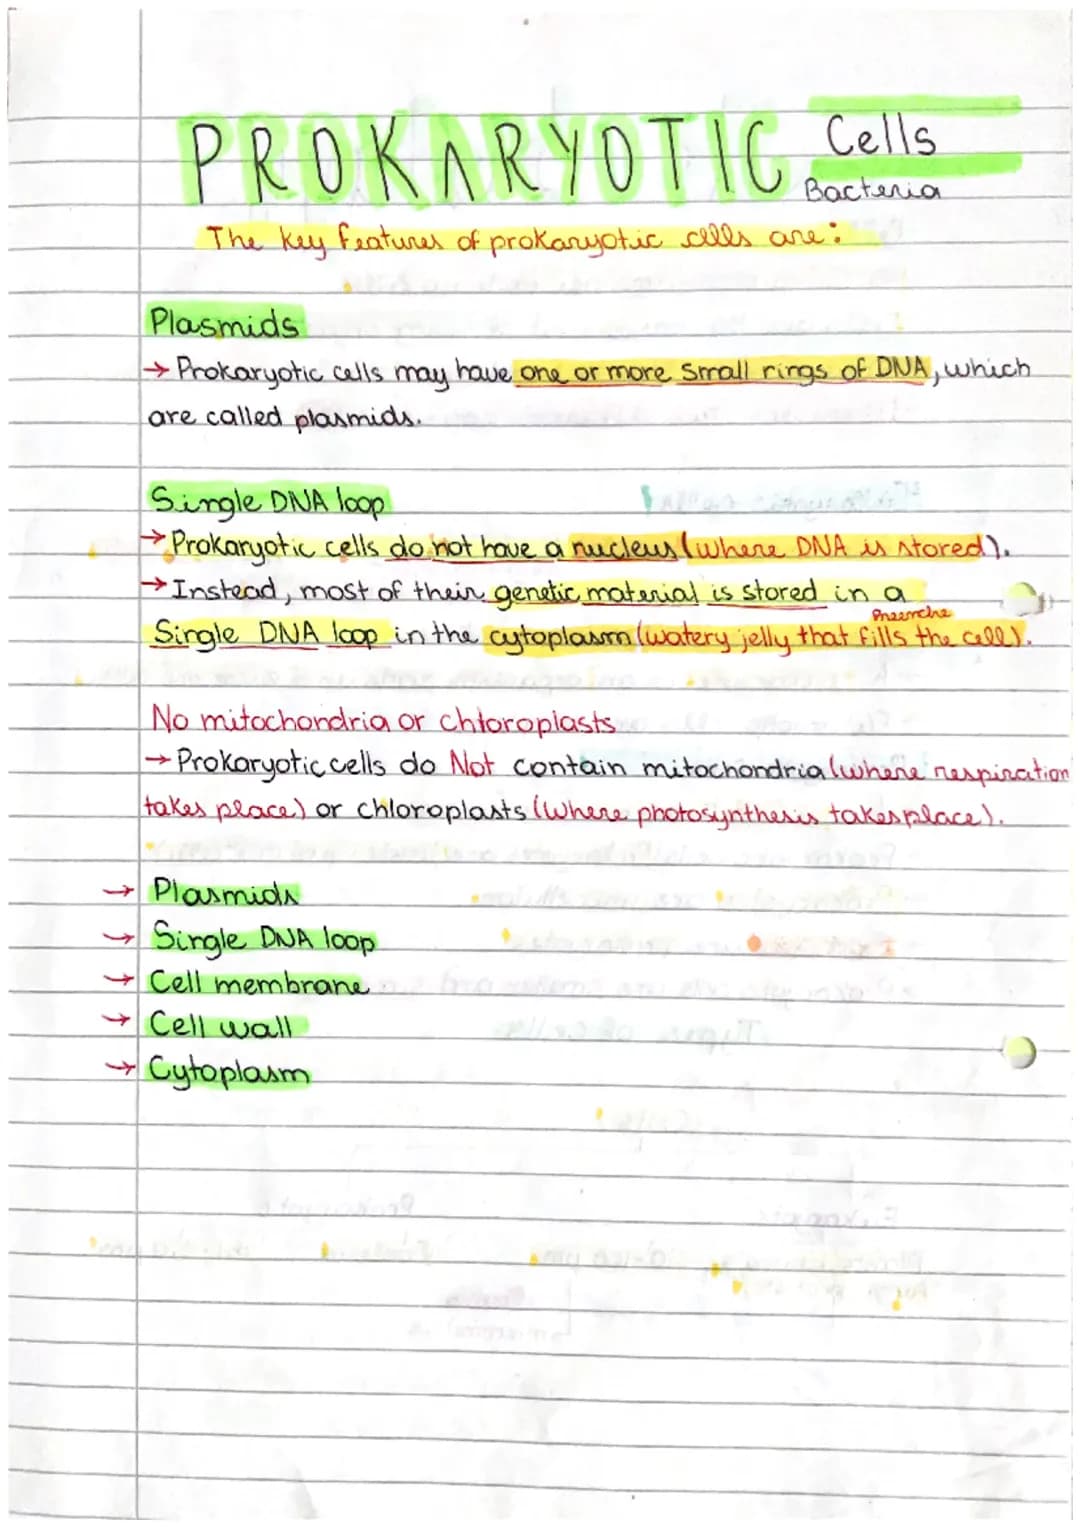 PROKARYOTIC Cells
Bacteria
The key features of prokaryotic cells are:
Plasmids
→ Prokaryotic cells may have one or more small rings of DNA, which
are called plasmids.
Single DNA loop
→ Prokaryotic cells do not have a nucleus (where DNA is stored).
→ Instead, most of their genetic material is stored in a
Preenche
Single DNA loop in the cytoplasm (watery jelly that fills the cell).
No mitochondria or chloroplasts
→ Prokaryotic cells do Not contain mitochondria (where respiration
takes place) or chloroplasts (where photosynthesis takes place).
→ Plasmids
→ Single DNA loop
→ Cell membrane
→ Cell wall
→ Cytoplasm